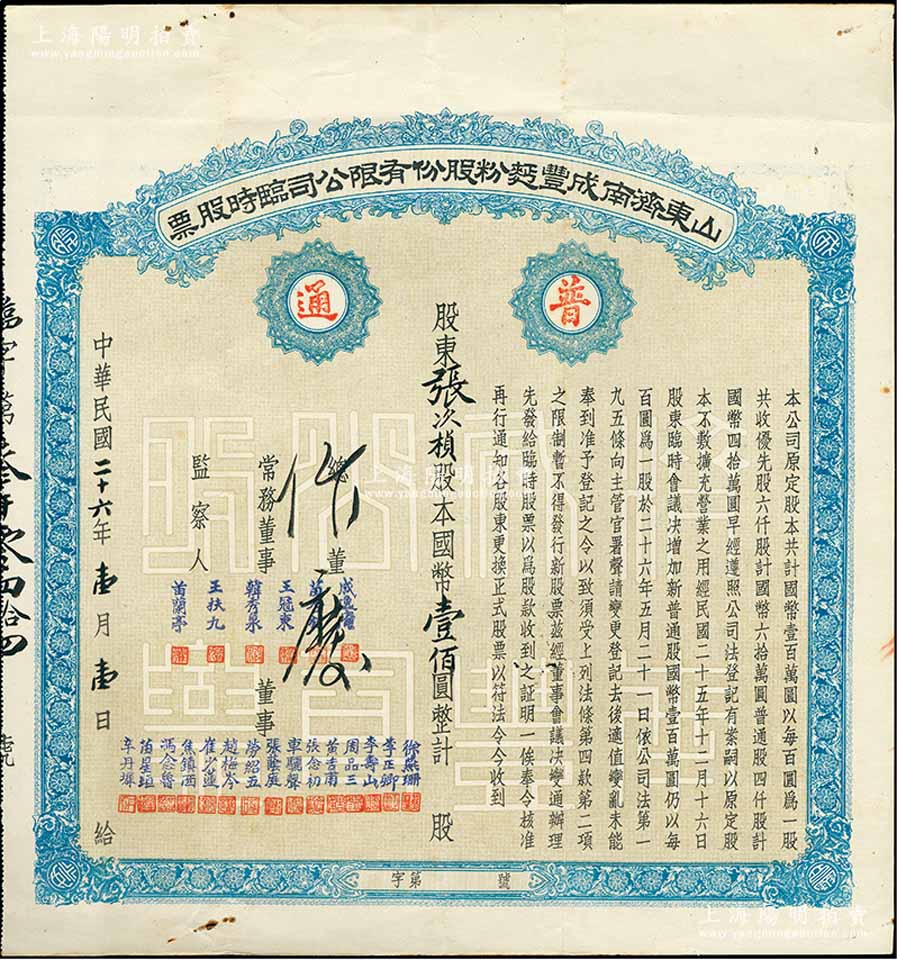 上海陽明拍賣
www.yangmingauction.com
山東濟南成豐麪粉股份有限公司臨時股票
普通
本公司原定股本共計國幣壹百萬圓以每百圓爲一股
共收優先股六仟股計國幣六拾萬圓普通股四仟股計
國幣四拾萬圓早經遵照公司法登記有案嗣以原定股
本不敷擴充營業之用經民國二十五年十二月十六日
股東臨時會議决增加新普通股國幣壹百萬圓仍以每
百圓爲一股於二十六年五月二十一日依公司法第一
九五條向主管官署聲請變更登記去後適值變亂未能
奉到准予登記之令以致須受上列法條第四款第二項
之限制暫不得發行新股票茲經董事會議决變通辦理
先發給臨時股票以爲股款收到之証明一俟奉令核准
再行通知各股東更換正式股票以符法令今收到
股東張次楨股本國幣壹佰圓整計 股
總董
作廢
常務董事 王冠東 韓秀泉
監察人 王扶九 苗蘭亭
董事 徐燕珊 李正卿 李壽山 周品三 苗吉南 張念初 車驥聲 張蔭庭 勞紹五 趙梅岑 崔少蓮 焦鎮西 馮念魯 苗星垣 辛丹墀
中華民國二十六年壹月壹日 給
字第 號
上海陽明拍賣
www.yangmingauction.com
上海陽明拍賣
www.yangmingauction.com